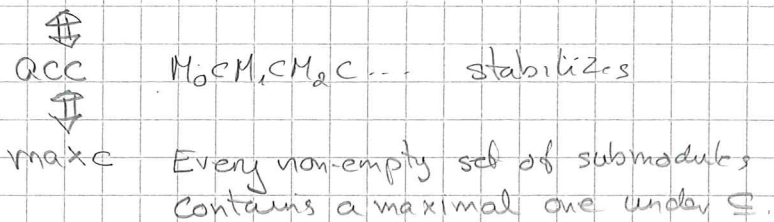 ⇕
acc M₀⊂M₁⊂M₂⊂... stabilizes
⇕
maxc Every non-empty set of submodules
contains a maximal one under ⊆.